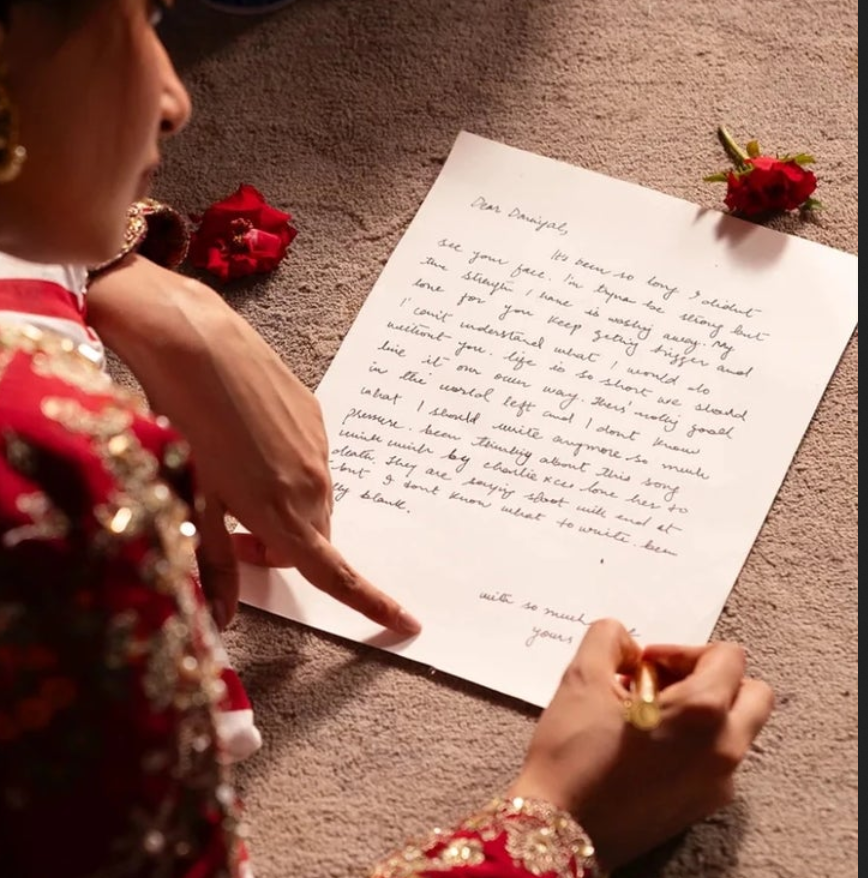 Dear Daniyal,
It's been so long I didnt
see your face. I'm tryna be strong but
the strength I have is washing away. My
love for you keep getting bigger and
I can't understand what I would do
without you. life is so short we should
live it our own way. Theres nothing good
in the world left and I dont know
what I should write anymore so much
pressure. been thinking about this song
by charlie xcx love her to
death. They are saying shoot will end at
but I dont know what to write. been
blank.
with so much
yours